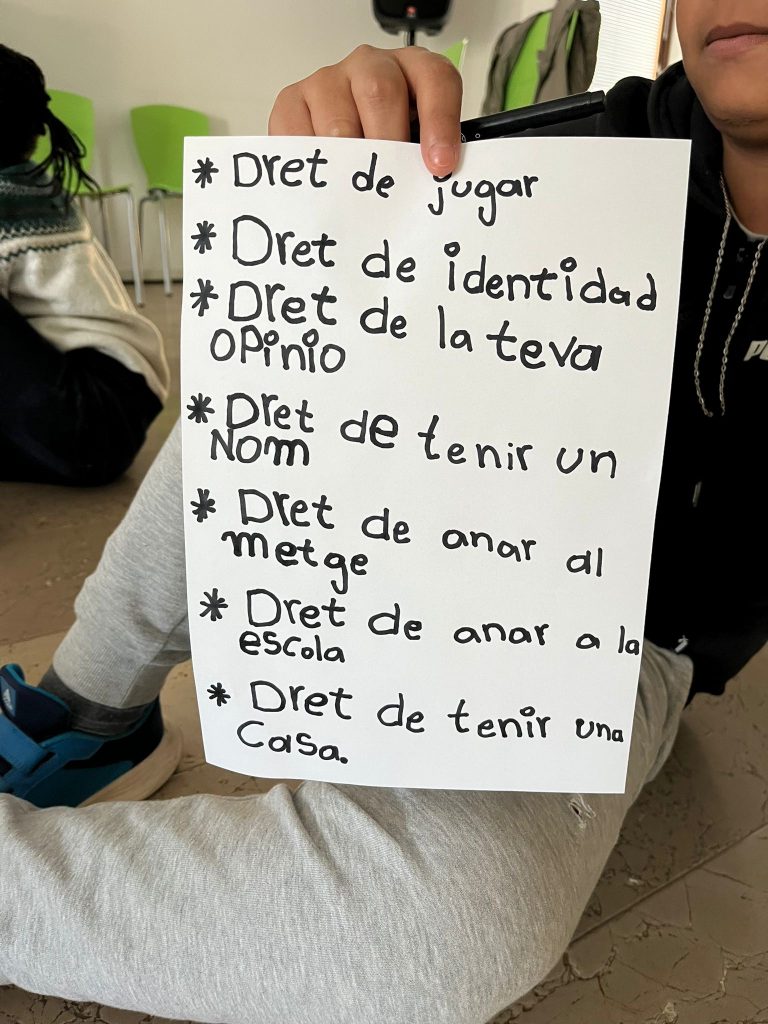 * Dret de jugar
* Dret de identidad
* Dret de la teva
opinio
* Dret de tenir un
Nom
* Dret de anar al
metge
* Dret de anar a la
escola
* Dret de tenir una
Casa.